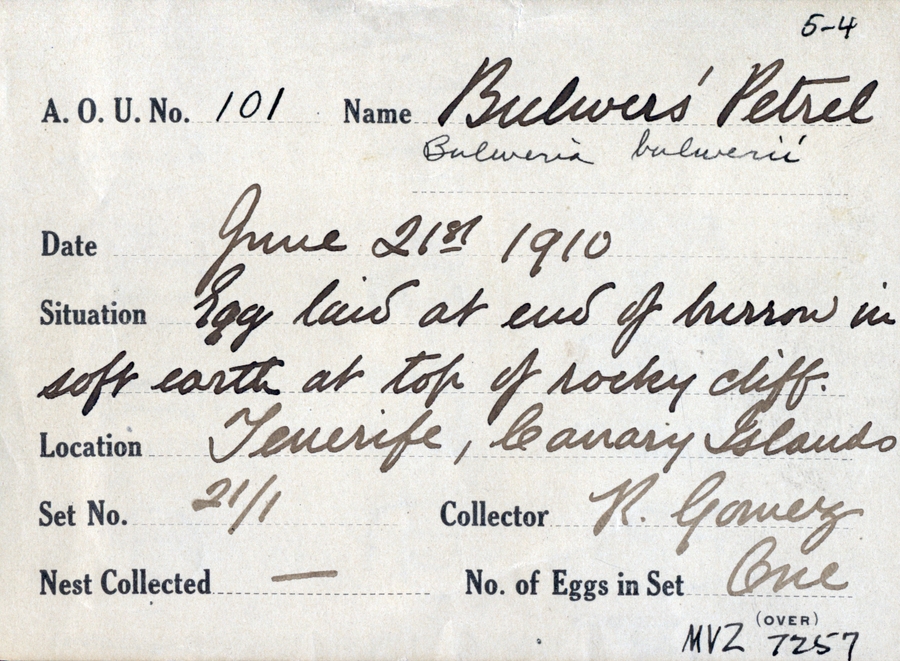 5-4
A. O. U. No. 101 Name Bulwers' Petrel
Bulweria bulwerii
Date June 21st 1910
Situation Egg laid at end of burrow in
soft earth at top of rocky cliff.
Location Tenerife, Canary Islands
Set No. 21/1 Collector R. Gomez
Nest Collected — No. of Eggs in Set One
(OVER)
MVZ 7257